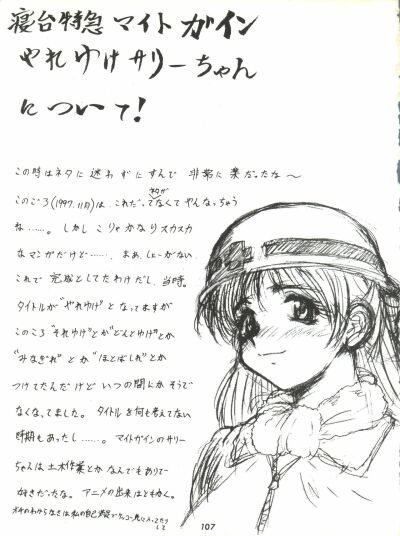 寝台特急 マイトガイン
やれゆけサリーちゃん
について!
この時はネタに迷わずにすんで 非常に楽だったな〜
このごろ(1997.11月)は、これだってネタがなくてやんなっちゃう
ね……。しかしこりゃかなりスカスカ
なマンガだけど……、まぁ、しょーがない
これで完成としてたわけだし、当時。
タイトルが"やれゆけ"となってますが
このころ"それゆけ"とか"どんとゆけ"とか
"みなぎれ"とか"ほとばしれ"とか
つけてたんだけどいつの間にかそうで
なくなってました。タイトルを何も考えてない
時期もあったし……。マイトガインのサリー
ちゃんは土木作業とかなんでもありで
好きだったな。アニメの出来はともかく。
オチのわからなさは私の自己満足で
107